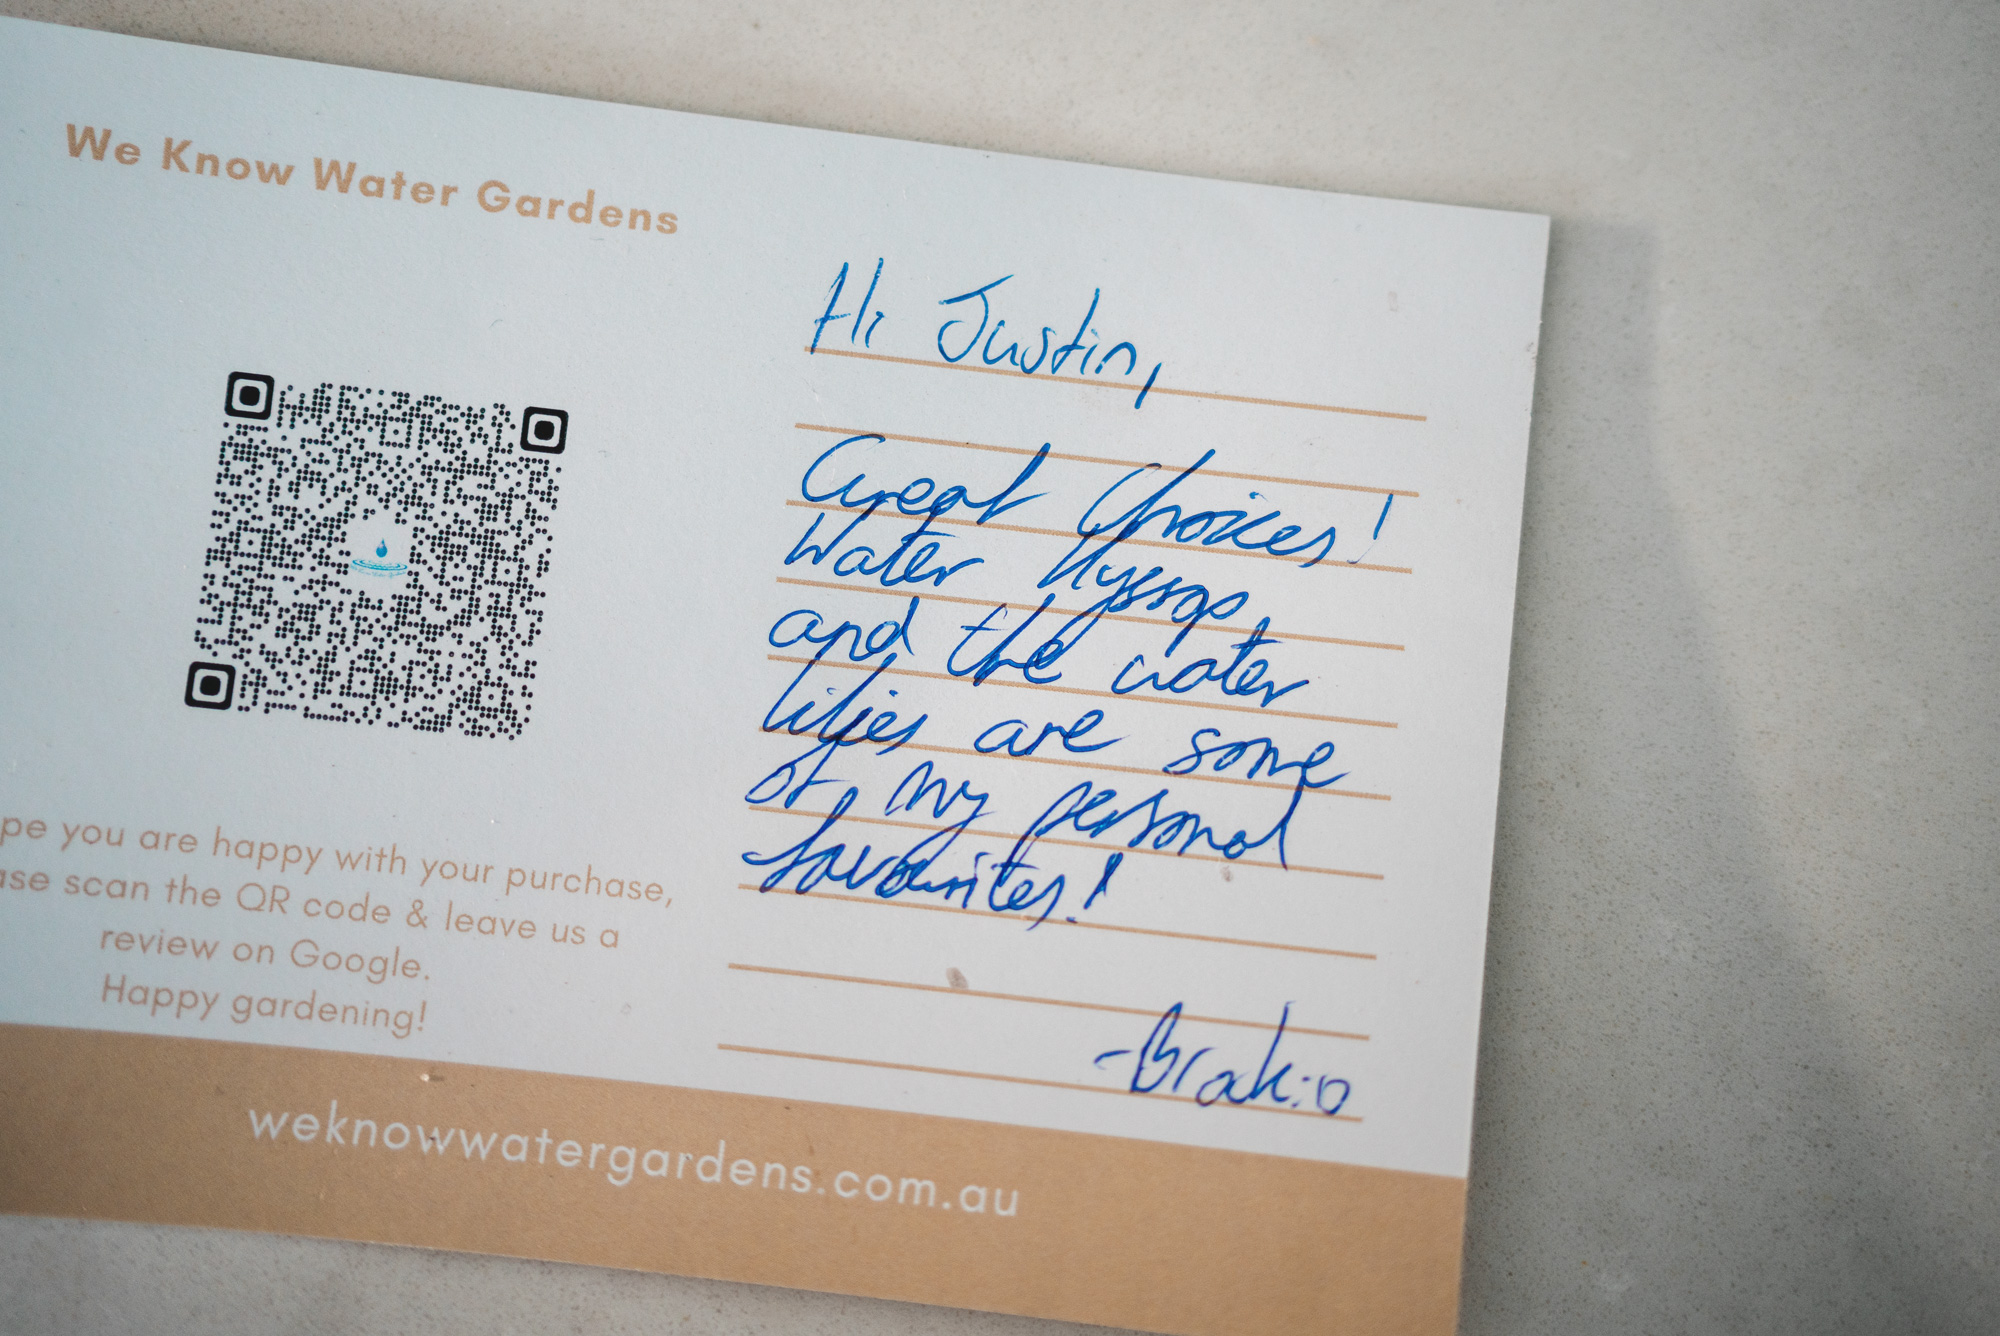 We Know Water Gardens
pe you are happy with your purchase,
ase scan the QR code & leave us a
review on Google.
Happy gardening!
Hi Justin,
Great Choices!
Water Hyssop,
and the water
lilies are some
of my personal
favourites!
weknowwatergardens.com.au